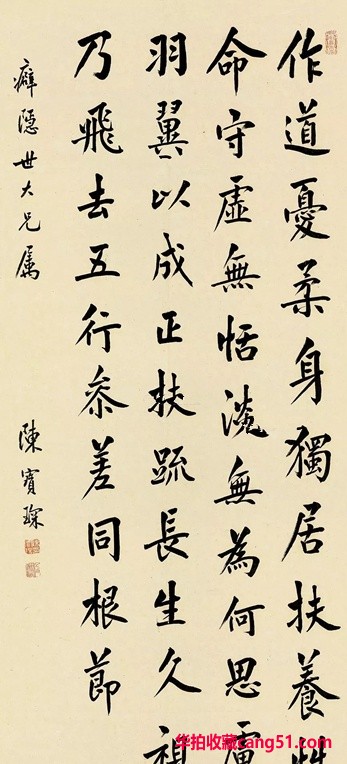 作道憂柔身獨居扶養性
命守虛無恬淡無為何思慮
羽翼以成正扶疏長生久視
乃飛去五行叅差同根節
癖隱世大兄属
陳寶琛
华拍收藏cang51.com